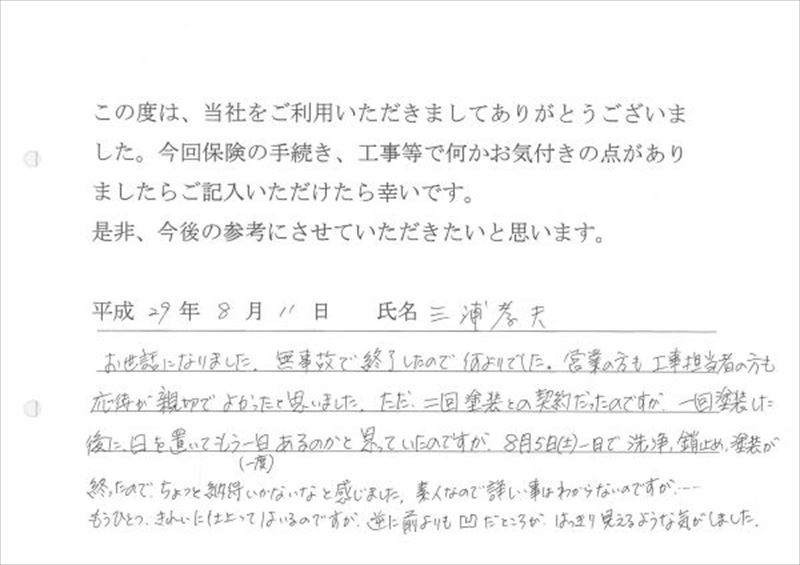 この度は、当社をご利用いただきましてありがとうございま
した。今回保険の手続き、工事等で何かお気付きの点があり
ましたらご記入いただけたら幸いです。
是非、今後の参考にさせていただきたいと思います。
平成 29 年 8 月 11 日 氏名 三浦孝夫
お世話になりました。無事故で終了したので何よりでした。営業の方も工事担当者の方も
応待が親切でよかったと思いました。ただ、二回塗装との契約だったのですが、一回塗装した
後に、日を置いてもう一日あるのかと思っていたのですが、8月5日(土)一日で洗浄、錆止め、塗装が
(一度)
終ったので、ちょっと納得いかないなと感じました。素人なので詳しい事はわからないのですが……
もうひとつ、きれいに仕上ってはいるのですが、逆に前よりも凹だところが、はっきり見えるような気がしました。